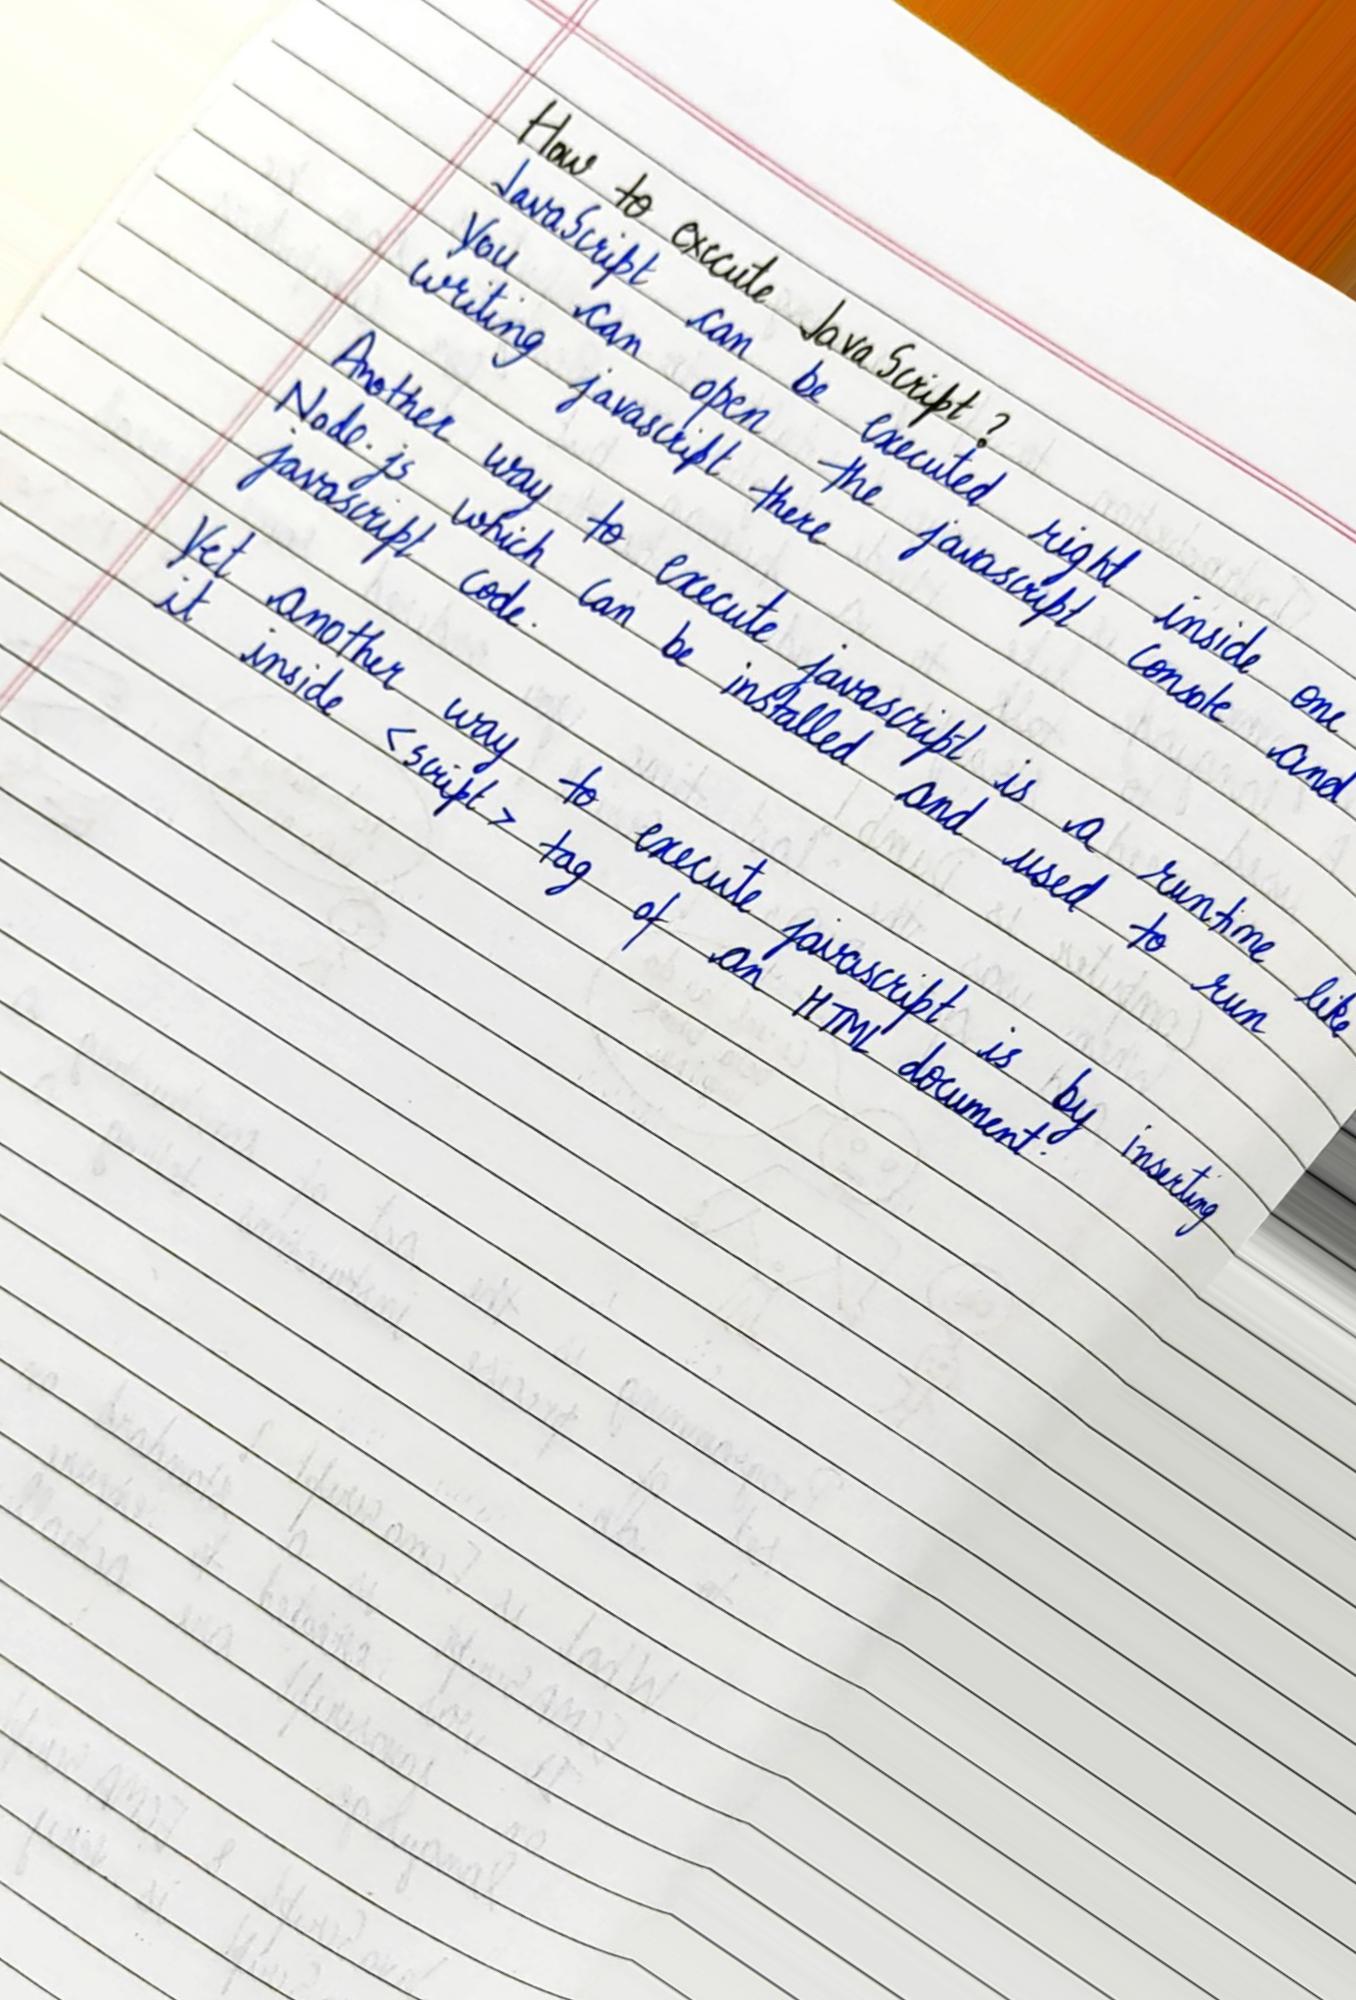 How to execute JavaScript?
JavaScript can be executed right inside one
You can open the javascript console and
writing javascript there
Another way to execute javascript is a runtime like
Node.js which can be installed and used to run
javascript code.
Yet another way to execute javascript is by inserting
it inside <script> tag of an HTML document.